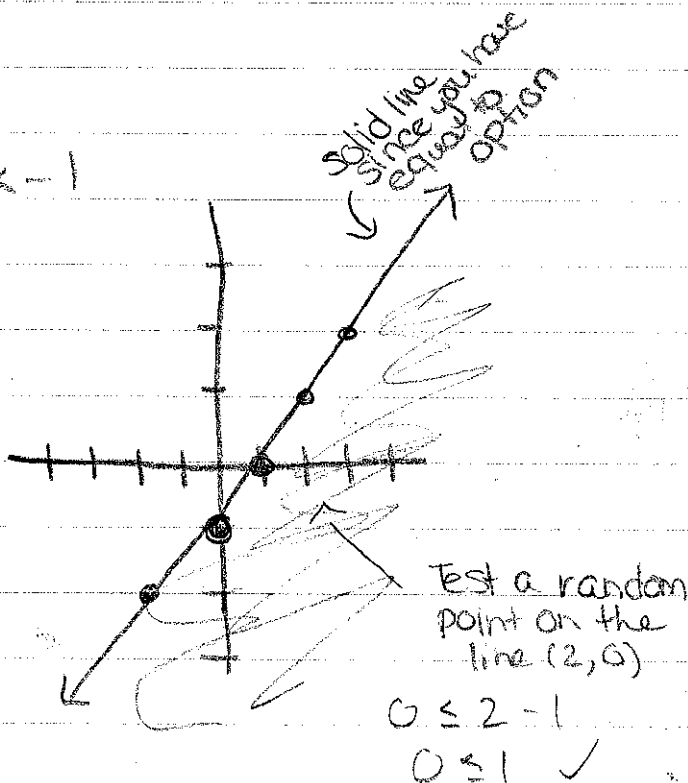 x - 1
solid line
since you have
equal to
option
Test a random
point on the
line (2, 0)
0 ≤ 2 - 1
0 ≤ 1 ✓